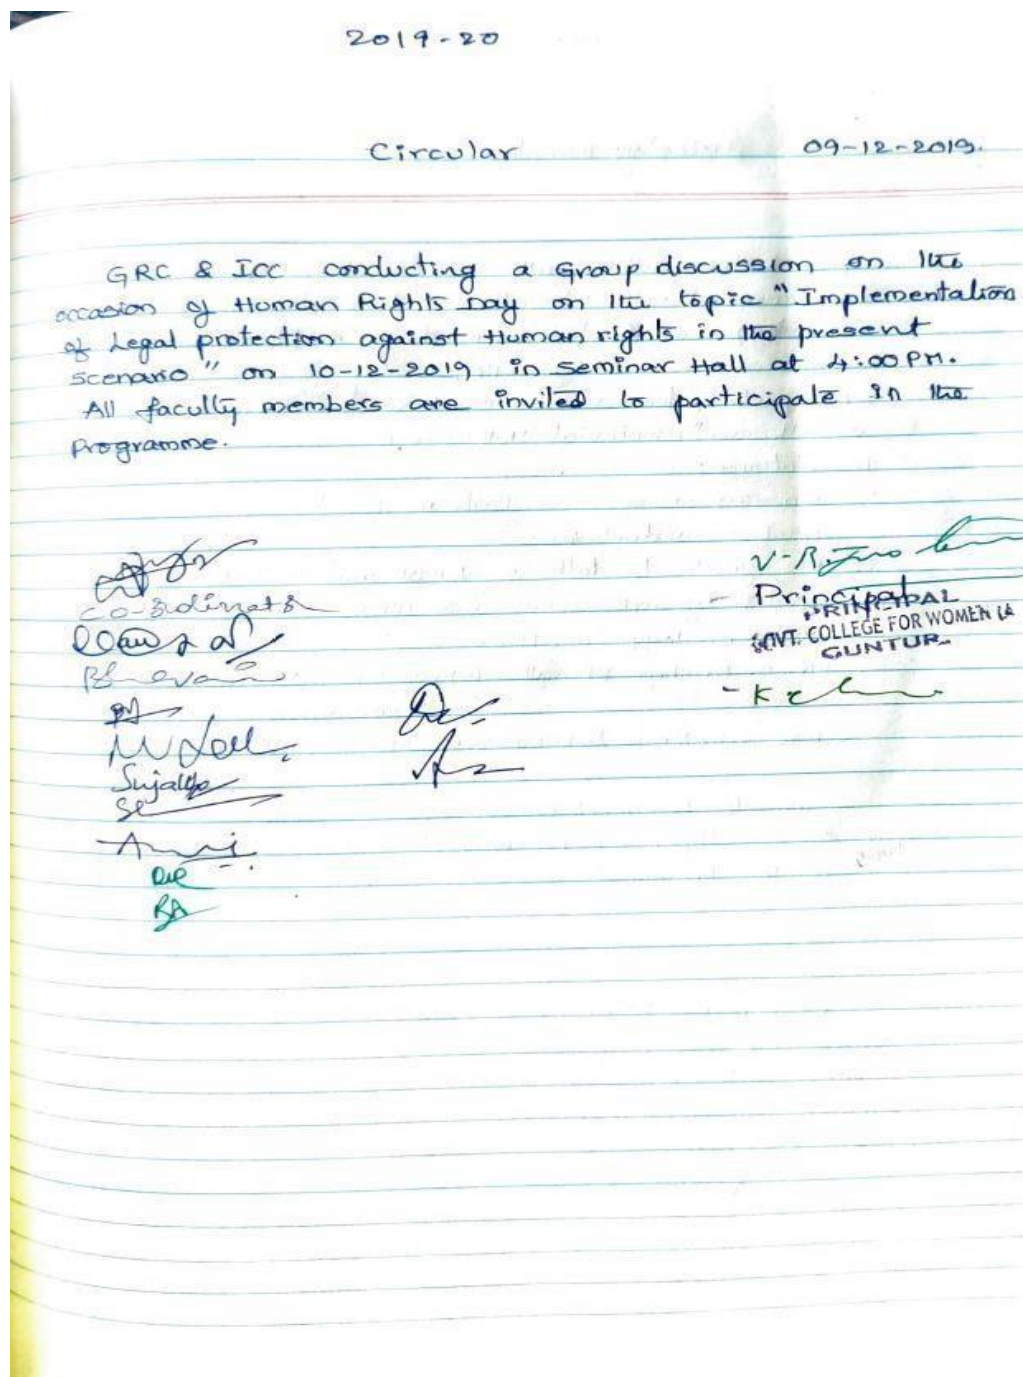 2019-20
Circular 09-12-2019.
GRC & ICC conducting a Group discussion on the
occasion of Human Rights Day on the topic "Implementation
of Legal protection against Human rights in the present
scenario" on 10-12-2019 in seminar Hall at 4:00 PM.
All faculty members are invited to participate in the
Programme.
Co-ordinator
Principal
PRINCIPAL
GOVT. COLLEGE FOR WOMEN (A
GUNTUR
Sujatha